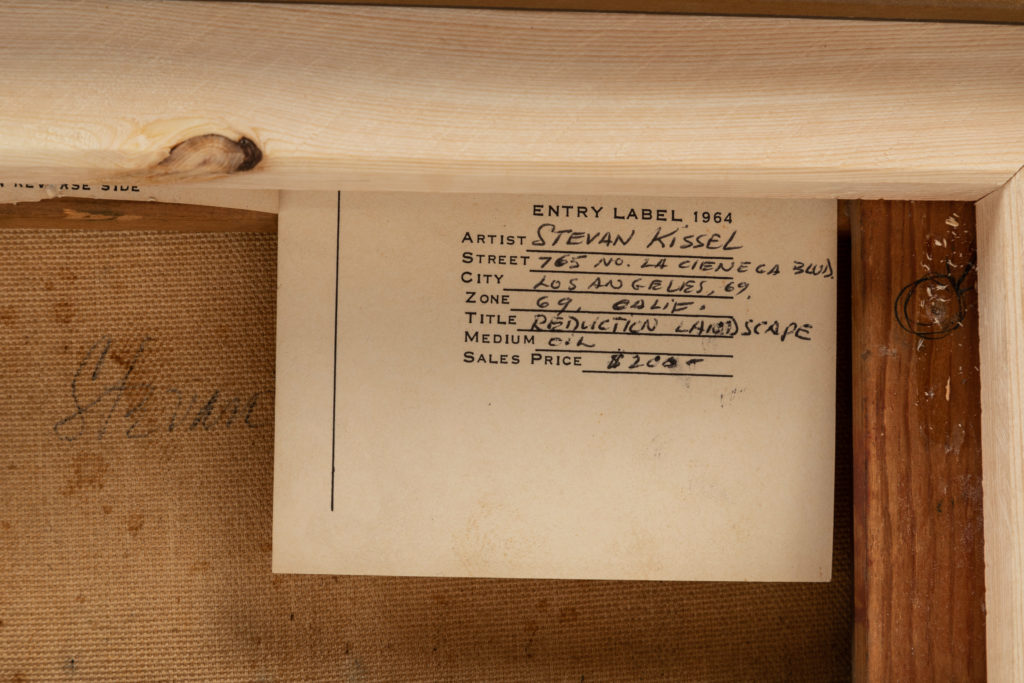 REVERSE SIDE
ENTRY LABEL 1964
ARTIST STEVAN KISSEL
STREET 765 NO. LA CIENEGA BLVD.
CITY LOS ANGELES, 69,
ZONE 69, CALIF.
TITLE REDUCTION LANDSCAPE
MEDIUM OIL
SALES PRICE $200-